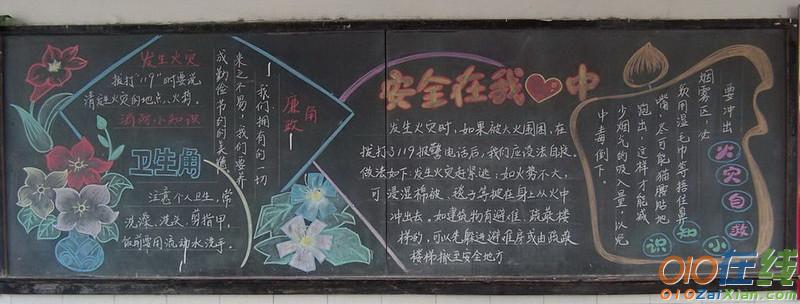 发生火灾
拨打"119"时要说
清楚火灾的地点、火势。
消防小知识
卫生角
注意个人卫生，常
洗澡、洗头、剪指甲，
饭前要用流动水洗手。
廉政角
我们拥有的一切
来之不易，我们要养
成勤俭节约的美德
安全在我心中
发生火灾时，如果被大火围困，在
拨打119报警电话后，我们应设法自救。
做法如下：发生火灾赶紧逃；如火势不大，
可浸湿棉被、毯子等披在身上从火中
冲出去。如建筑物有避难、疏散楼
梯的，可以先躲进避难房或由疏散
楼梯撤至安全地方
要冲出
烟雾区，必
须用湿毛巾等捂住鼻
嘴，尽可能猫腰贴地
跑出，这样才能减
少烟气的吸入量，以免
中毒倒下。
火灾自救
小知识
010在线
010ZaiXian.com